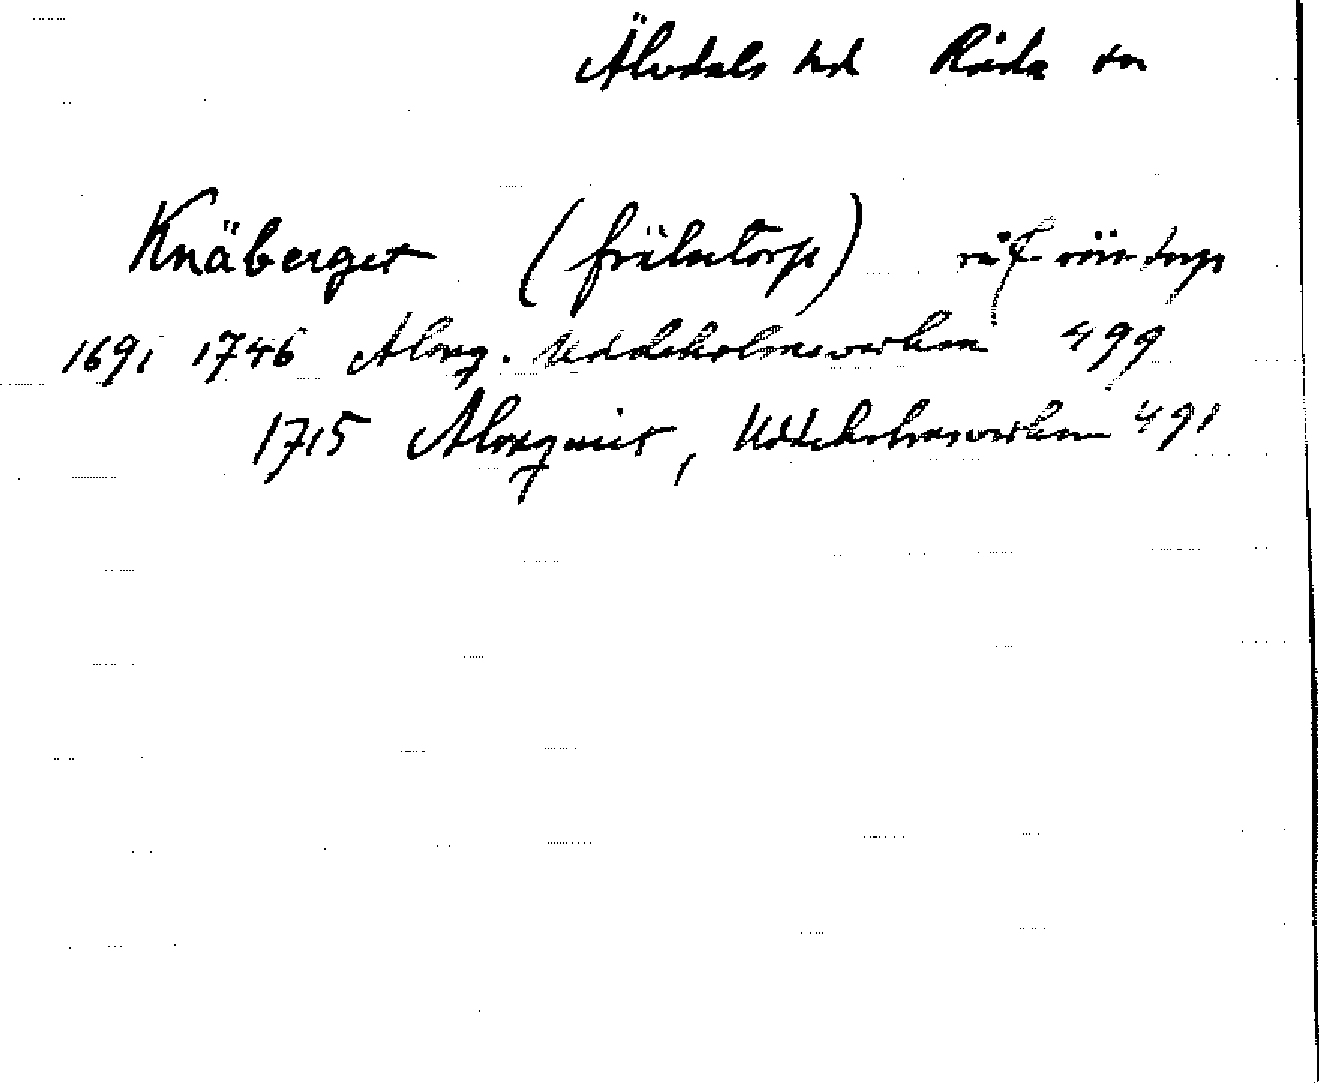 Älvdals hd Råda sn
Knäberget (frälsetorp)
1691 1746 Almq. Uddeholmsverken 499
1715 Almquist, Uddeholmsverken 491